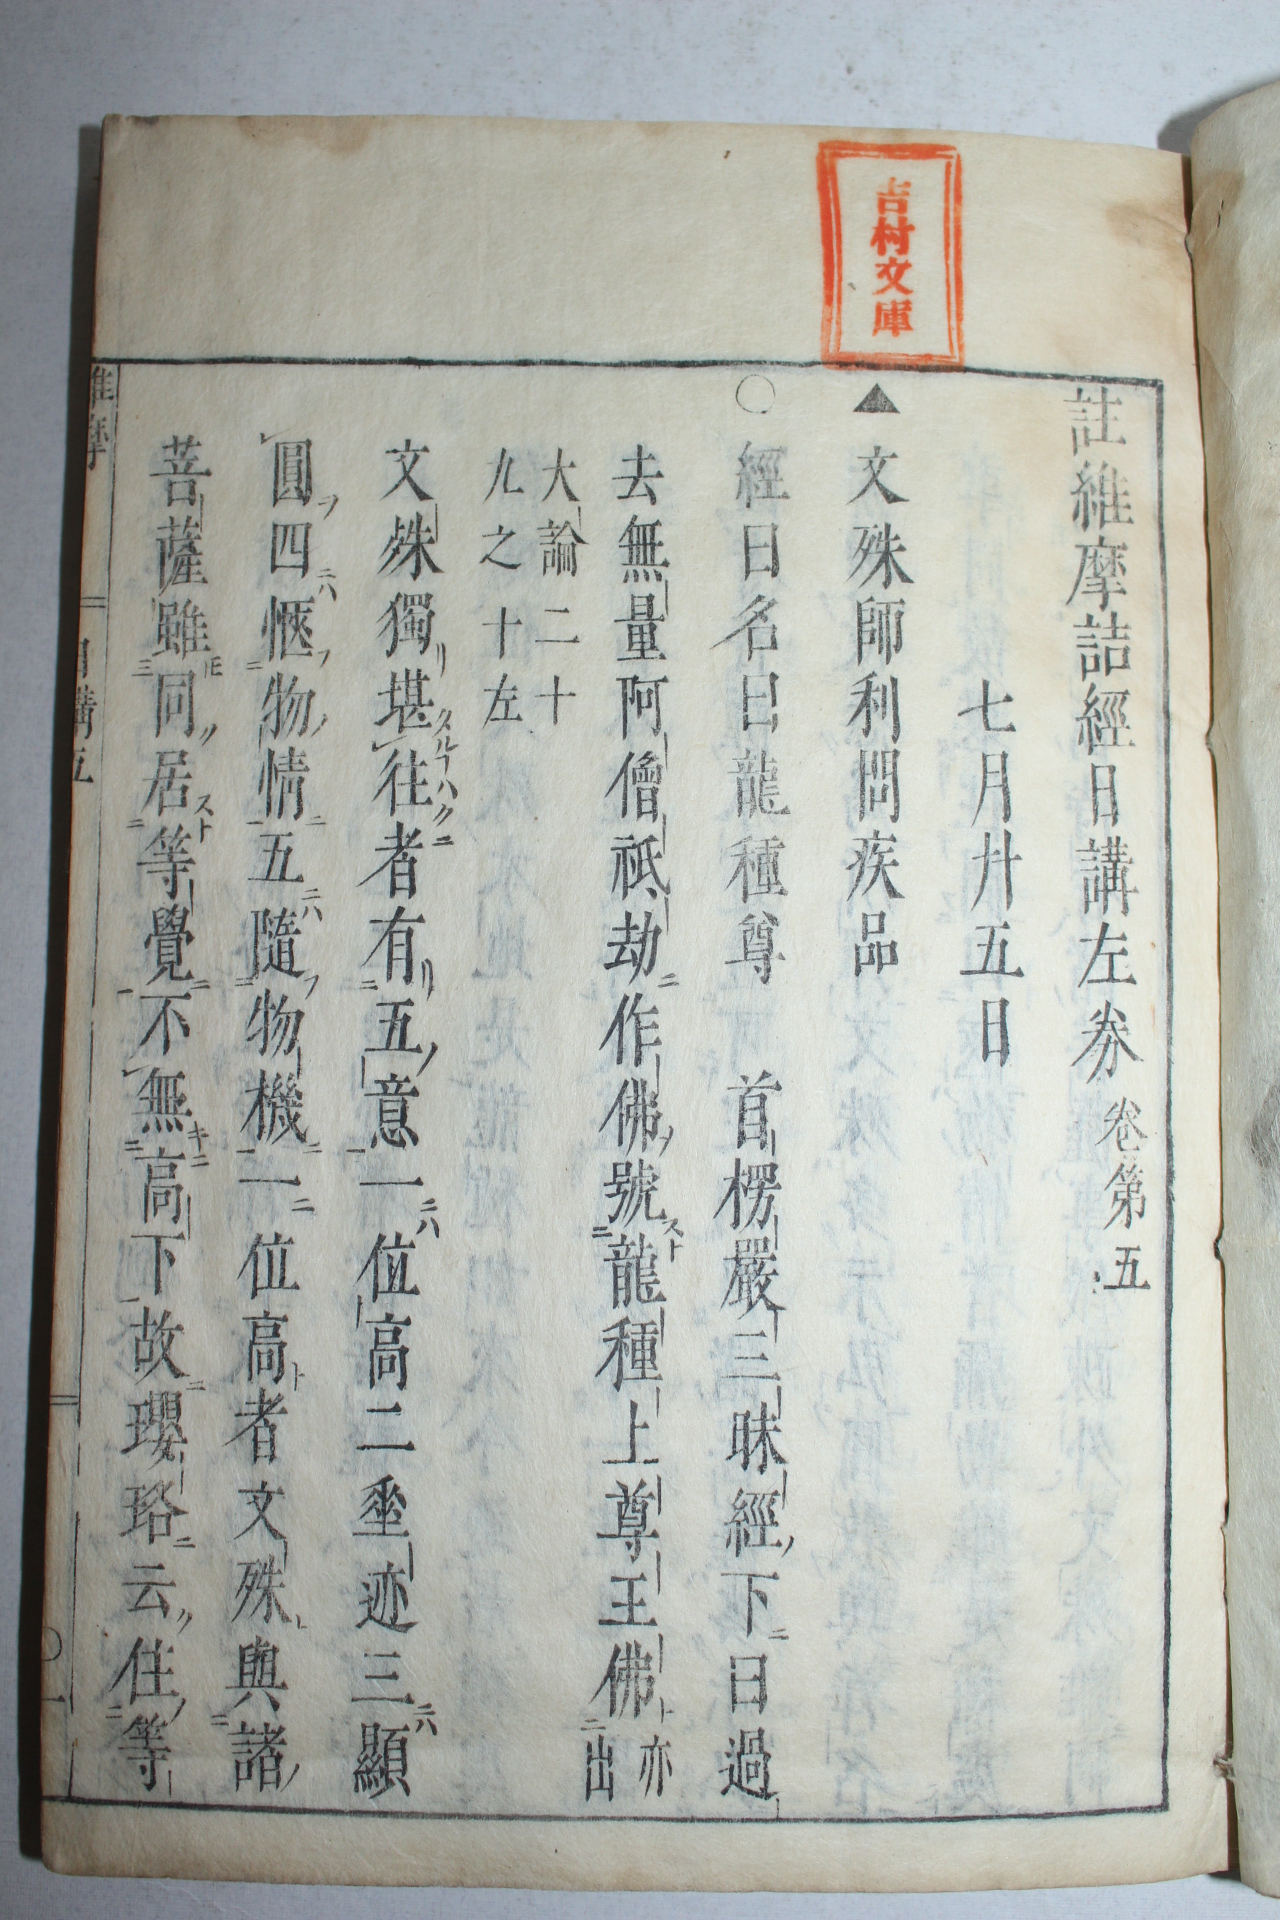 吉村文庫
註維摩詰經日講左券 卷第五
七月廿五日
▲文殊師利問疾品
○經曰名曰龍種尊 首楞嚴三昧經下曰過
去無量阿僧祇劫作佛號龍種上尊王佛亦出
大論二十
九之十左
文殊獨堪往者有五意一位高二垂迹三顯
圓四愜物情五隨物機一位高者文殊與諸
菩薩雖同居等覺不無高下故瓔珞云住等
維摩 日講五